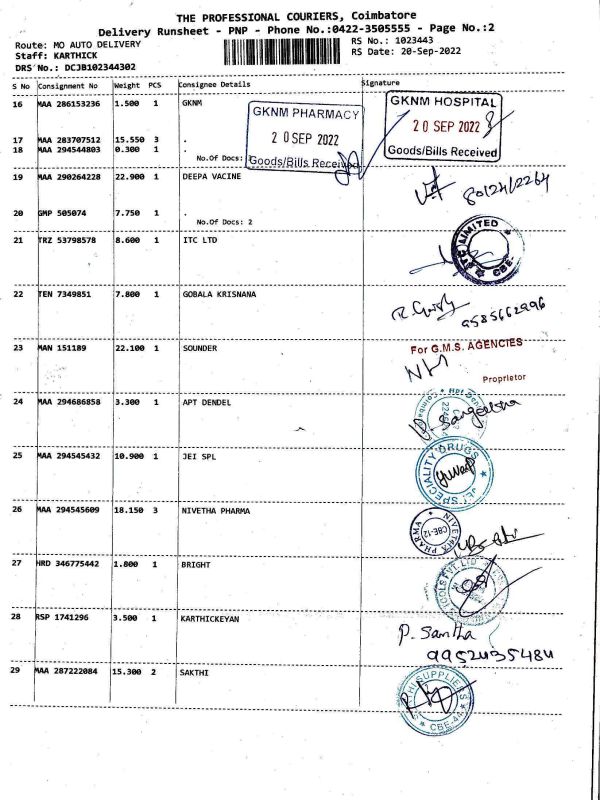 THE PROFESSIONAL COURIERS, Coimbatore
Delivery Runsheet - PNP - Phone No.:0422-3505555 - Page No.:2
Route: MO AUTO DELIVERY
RS No.: 1023443
Staff: KARTHICK
RS Date: 20-Sep-2022
DRS No.: DCJB102344302
S No Consignment No Weight PCS Consignee Details Signature
16 MAA 286153236 1.500 1 GKNM
GKNM PHARMACY
20 SEP 2022
Goods/Bills Received
GKNM HOSPITAL
20 SEP 2022
Goods/Bills Received
17 MAA 283707512 15.550 3 .
18 MAA 294544803 0.300 1 .
No.Of Docs:
19 MAA 290264228 22.900 1 DEEPA VACINE
20 GMP 505074 7.750 1 .
No.Of Docs: 2
21 TRZ 53798578 8.600 1 ITC LTD
LIMITED
CBE-
22 TEN 7349851 7.800 1 GOBALA KRISNANA
9585662996
23 MAN 151189 22.100 1 SOUNDER
For G.M.S. AGENCIES
Proprietor
24 MAA 294686858 3.300 1 APT DENDEL
Sangeetha
25 MAA 294545432 10.900 1 JEI SPL
JEI SPECIALITY DRUGS
26 MAA 294545609 18.150 3 NIVETHA PHARMA
NIVETHA PHARMA
CBE-12
27 HRD 346775442 1.800 1 BRIGHT
TOOLS PVT. LTD
28 RSP 1741296 3.500 1 KARTHICKEYAN
P. Santha
9952435484
29 MAA 287222084 15.300 2 SAKTHI
SAKTHI SUPPLIERS
CBE-44